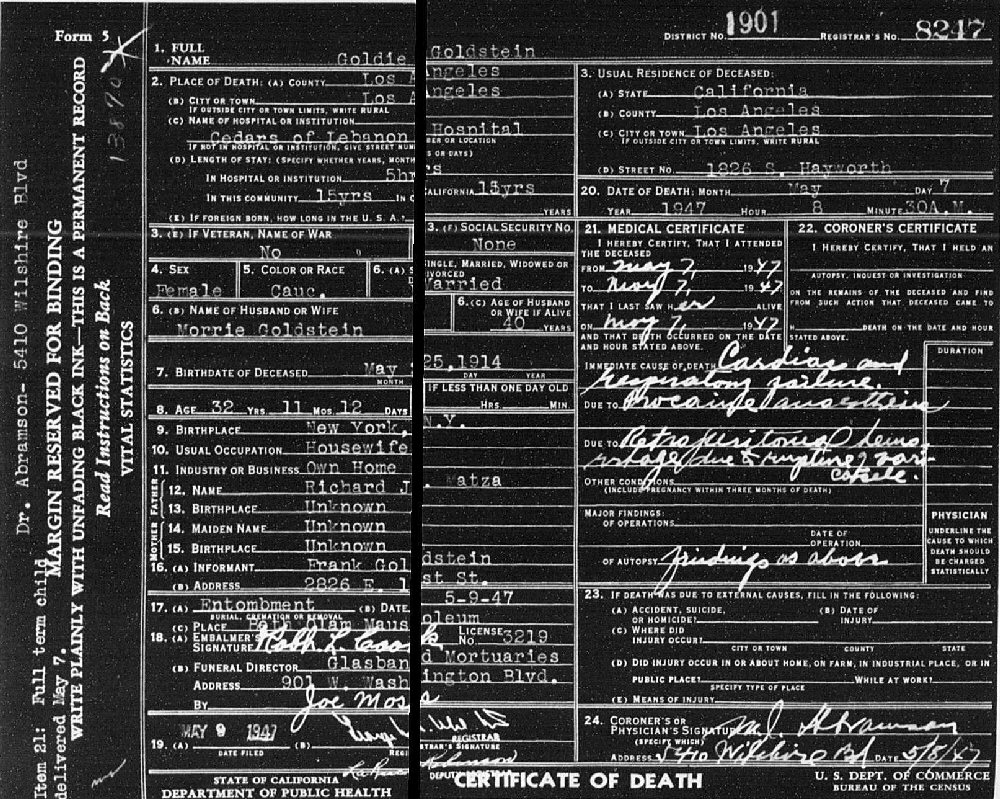 Form 5
13870
Dr. Abramson- 5410 Wilshire Blvd
MARGIN RESERVED FOR BINDING
WRITE PLAINLY WITH UNFADING BLACK INK—THIS IS A PERMANENT RECORD
Read Instructions on Back
VITAL STATISTICS
Item 21: Full term child
delivered May 7.
DISTRICT NO. 1901 REGISTRAR'S NO. 8247
1. FULL NAME Goldie Goldstein
2. PLACE OF DEATH: (A) COUNTY Los Angeles
(B) CITY OR TOWN Los Angeles
IF OUTSIDE CITY OR TOWN LIMITS, WRITE RURAL
(C) NAME OF HOSPITAL OR INSTITUTION
Cedars of Lebanon Hospital
IF NOT IN HOSPITAL OR INSTITUTION, GIVE STREET NUMBER OR LOCATION
(D) LENGTH OF STAY: (SPECIFY WHETHER YEARS, MONTHS OR DAYS)
IN HOSPITAL OR INSTITUTION 5hrs
IN THIS COMMUNITY 15yrs IN CALIFORNIA 15yrs
(E) IF FOREIGN BORN, HOW LONG IN THE U. S. A.? YEARS
3. (E) IF VETERAN, NAME OF WAR
No
3. (F) SOCIAL SECURITY NO.
None
4. SEX
Female
5. COLOR OR RACE
Cauc.
6. (A) SINGLE, MARRIED, WIDOWED OR DIVORCED
Married
6. (B) NAME OF HUSBAND OR WIFE
Morrie Goldstein
6. (C) AGE OF HUSBAND OR WIFE IF ALIVE
40 YEARS
7. BIRTHDATE OF DECEASED May 25, 1914
MONTH DAY YEAR
8. AGE 32 YRS. 11 MOS. 12 DAYS
IF LESS THAN ONE DAY OLD
HRS. MIN.
9. BIRTHPLACE New York, N.Y.
10. USUAL OCCUPATION Housewife
11. INDUSTRY OR BUSINESS Own Home
FATHER
12. NAME Richard J. Matza
13. BIRTHPLACE Unknown
MOTHER
14. MAIDEN NAME Unknown
15. BIRTHPLACE Unknown
16. (A) INFORMANT Frank Goldstein
(B) ADDRESS 2826 E. 1st St.
17. (A) Entombment (B) DATE 5-9-47
BURIAL, CREMATION OR REMOVAL
(C) PLACE Beth Olam Mausoleum
18. (A) EMBALMER'S SIGNATURE LICENSE NO. 3219
(B) FUNERAL DIRECTOR Glasband Mortuaries
ADDRESS 901 W. Washington Blvd.
BY Joe Moss
19. (A) MAY 9 1947 (B)
DATE FILED REGISTRAR
REGISTRAR'S SIGNATURE
DEPUTY
STATE OF CALIFORNIA
DEPARTMENT OF PUBLIC HEALTH
CERTIFICATE OF DEATH
3. USUAL RESIDENCE OF DECEASED:
(A) STATE California
(B) COUNTY Los Angeles
(C) CITY OR TOWN Los Angeles
IF OUTSIDE CITY OR TOWN LIMITS, WRITE RURAL
(D) STREET NO. 1826 S. Hayworth
20. DATE OF DEATH: MONTH May DAY 7
YEAR 1947 HOUR 8 MINUTE 30A.M.
21. MEDICAL CERTIFICATE
I HEREBY CERTIFY, THAT I ATTENDED
THE DECEASED
FROM May 7, 1947
TO May 7, 1947
THAT I LAST SAW HER ALIVE
ON May 7, 1947
AND THAT DEATH OCCURRED ON THE DATE
AND HOUR STATED ABOVE.
22. CORONER'S CERTIFICATE
I HEREBY CERTIFY, THAT I HELD AN
AUTOPSY, INQUEST OR INVESTIGATION
ON THE REMAINS OF THE DECEASED AND FIND
FROM SUCH ACTION THAT DECEASED CAME TO
H DEATH ON THE DATE AND HOUR
STATED ABOVE.
DURATION
IMMEDIATE CAUSE OF DEATH Cardiac and
respiratory failure.
DUE TO Procaine anaesthesia
DUE TO Retroperitoneal hemo-
rrhage due to rupture of vari-
cocele.
OTHER CONDITIONS
(INCLUDE PREGNANCY WITHIN THREE MONTHS OF DEATH)
MAJOR FINDINGS:
OF OPERATIONS
DATE OF
OPERATION
OF AUTOPSY Findings as above
PHYSICIAN
UNDERLINE THE
CAUSE TO WHICH
DEATH SHOULD
BE CHARGED
STATISTICALLY
23. IF DEATH WAS DUE TO EXTERNAL CAUSES, FILL IN THE FOLLOWING:
(A) ACCIDENT, SUICIDE, OR HOMICIDE? (B) DATE OF INJURY
(C) WHERE DID INJURY OCCUR?
CITY OR TOWN COUNTY STATE
(D) DID INJURY OCCUR IN OR ABOUT HOME, ON FARM, IN INDUSTRIAL PLACE, OR IN
PUBLIC PLACE? WHILE AT WORK?
SPECIFY TYPE OF PLACE
(E) MEANS OF INJURY
24. CORONER'S OR PHYSICIAN'S SIGNATURE M J Abramson
(SPECIFY WHICH)
ADDRESS 5410 Wilshire Bd DATE 5/8/47
U. S. DEPT. OF COMMERCE
BUREAU OF THE CENSUS